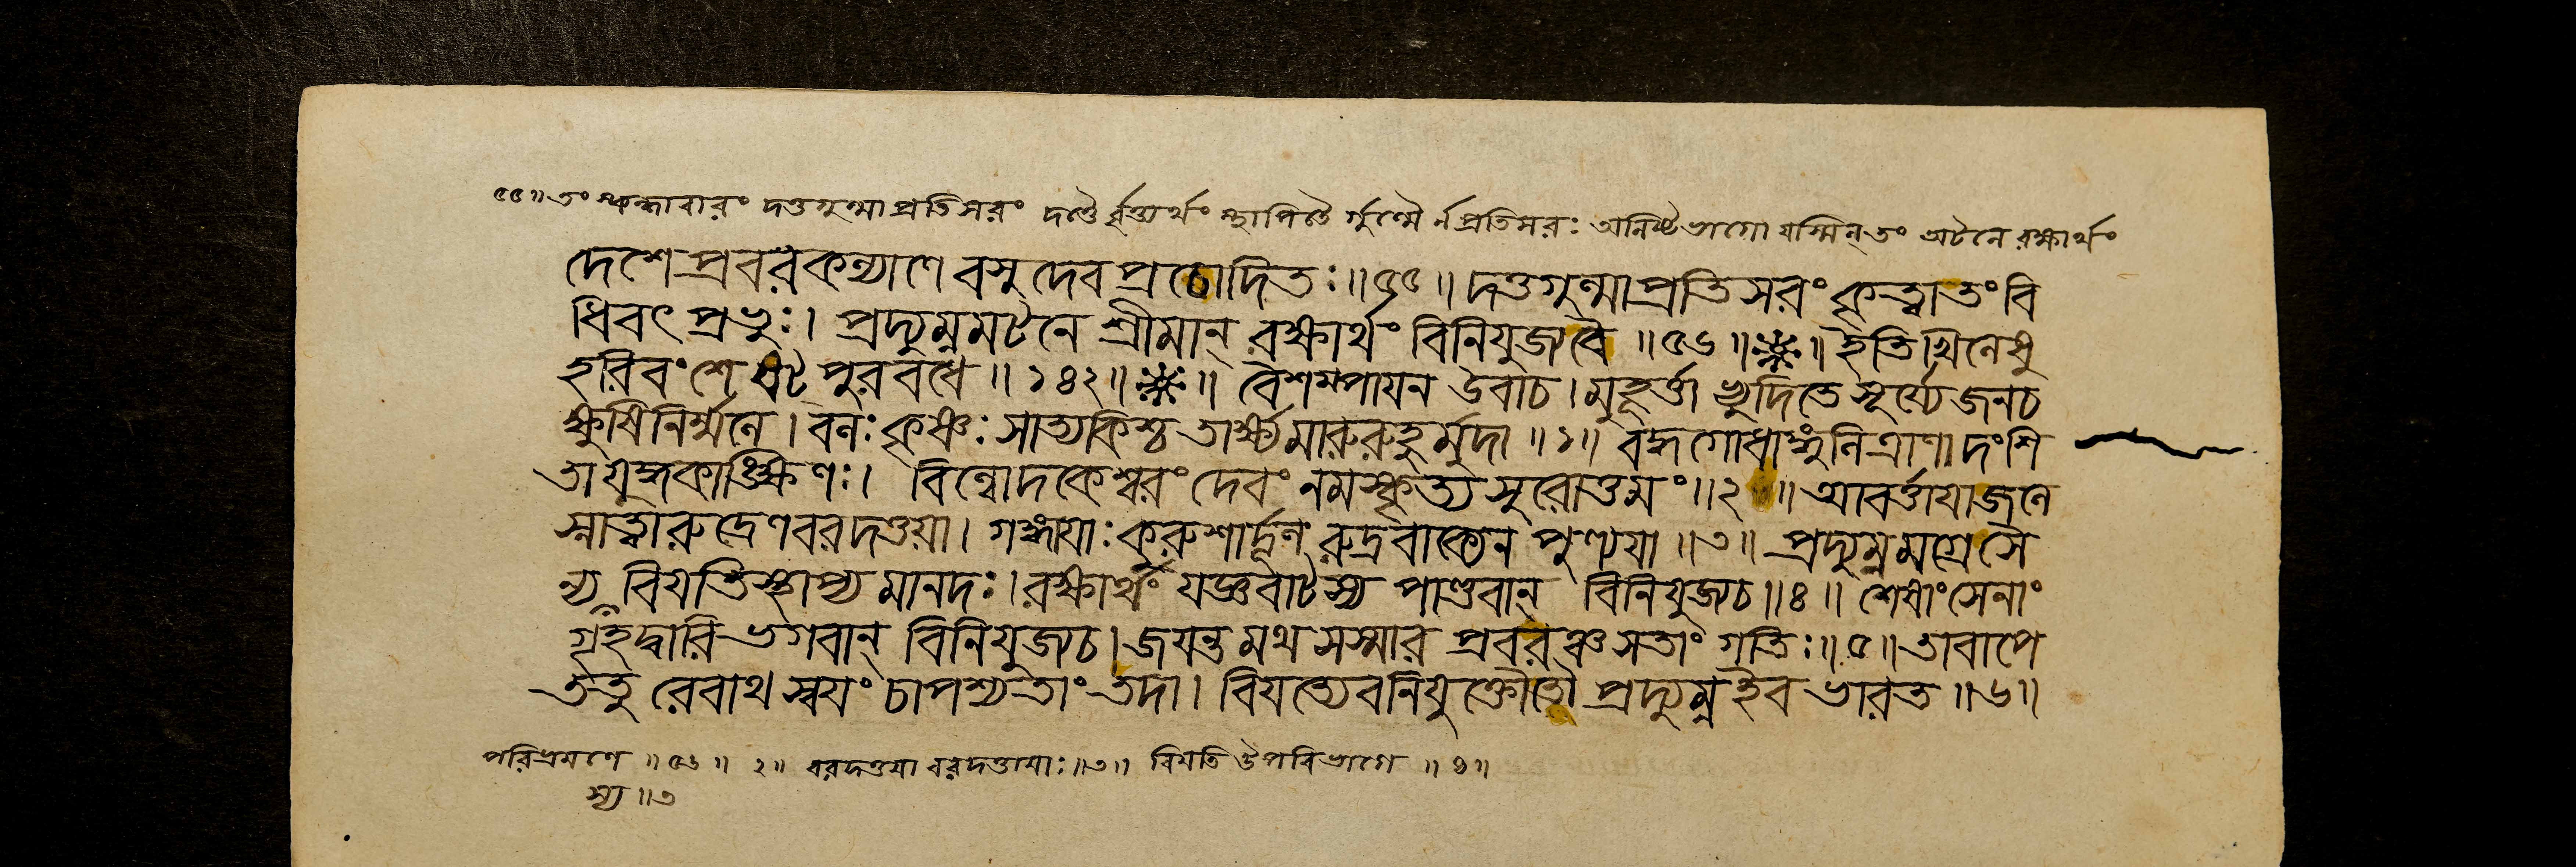 ৫৫॥ তং স্কন্ধাবারং দত্তগুল্মাপ্রতিসরং দণ্ডৈ র্বৃত্যর্থং স্থাপিতৈ র্গুল্মৈ র্নপ্রতিসরঃ অনিষ্টভাগো যস্মিন্ তং অটনে রক্ষার্থং
দেশে প্রবরকল্যাণে বসুদেব প্রচোদিতঃ॥৫৫॥ দত্তগুল্মাপ্রতিসরং কৃত্বাতং বি
ধিবৎ প্রভুঃ। প্রদ্যুম্নমটনে শ্রীমান্ রক্ষার্থং বিনিযুজ্যবৈ ॥৫৬॥ ॥ ইতি খিলেষু
হরিবংশে ষট্পুরবধে ॥ ১৪২॥ ॥ বৈশম্পায়ন উবাচ। মুহূর্ত্তাভ্যুদিতে সূর্য্যে জনচ
ক্ষুষি নির্ম্মলে। বলঃ কৃষ্ণঃ সাত্যকিশ্চ তার্ক্ষ্যমারুরুহুর্মুদা ॥১॥ বদ্ধগোধাঙ্গুলিত্রাণা দংশি
তা যুদ্ধকাঙ্ক্ষিণঃ। বিল্বোদকেশ্বরং দেবং নমস্কৃত্য সুরোত্তমং॥২॥ আবর্ত্তায়া জলে
স্নাত্বা রুদ্রেণ বরদত্তয়া। গঙ্গায়াঃ কুরুশার্দ্দূল রুদ্রবাক্যেন পুণ্যয়া ॥৩॥ প্রদ্যুম্নমগ্রেসৈ
ন্য বিয়তি স্থাপ্য মানদঃ। রক্ষার্থং যজ্ঞবাটস্য পাণ্ডবান্ বিনিযুজ্যচ॥৪॥ শেষাং সেনাং
গুহদ্বারি ভগবান্ বিনিযুজ্যচ। জয়ন্তমথ সস্মার প্রবরঞ্চ সতাং গতিঃ॥৫॥ তাবাপে
ততু রেবাথ স্বয়ং চাপশ্যতাং তদা। বিয়ত্যেব নিযুক্তৌতৌ প্রদ্যুম্ন ইব ভারত ॥৬॥
পরিভ্রমণে ॥৫৬॥ ২॥ বরদত্তয়া বরদত্তায়াঃ॥৩॥ বিয়তি উপরিভাগে ॥৪॥
স্য ॥৩